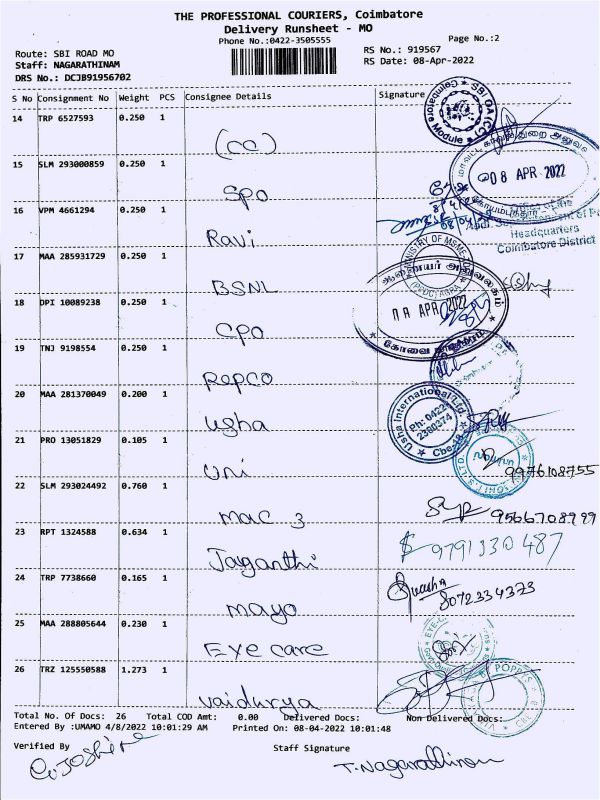 THE PROFESSIONAL COURIERS, Coimbatore
Delivery Runsheet - MO
Phone No.:0422-3505555
Page No.:2
Route: SBI ROAD MO
Staff: NAGARATHINAM
DRS No.: DCJB91956702
RS No.: 919567
RS Date: 08-Apr-2022
S No Consignment No Weight PCS Consignee Details Signature
14 TRP 6527593 0.250 1 (cc)
15 SLM 293000859 0.250 1 SPO
16 VPM 4661294 0.250 1 Ravi
17 MAA 285931729 0.250 1 BSNL
18 DPI 10089238 0.250 1 CPO
19 TNJ 9198554 0.250 1 Repco
20 MAA 281370049 0.200 1 Usha
21 PRO 13051829 0.105 1 Uni
22 SLM 293024492 0.760 1 Mac 3
23 RPT 1324588 0.634 1 Jaganthi
24 TRP 7738660 0.165 1 Mayo
25 MAA 288805644 0.230 1 Eye care
26 TRZ 125550588 1.273 1 Vaidurya
SBI OA (CC)
Coimbatore Module
08 APR 2022
Office of the
Headquarters
Coimbatore District
MINISTRY OF MSME
08 APR 2022
Usha International Ltd
Ph: 0422
2380374
Cbe-18
9976108755
9566708799
9791330487
8072334373
Total No. Of Docs: 26 Total COD Amt: 0.00 Delivered Docs: Non Delivered Docs:
Entered By :UMAMO 4/8/2022 10:01:29 AM Printed On: 08-04-2022 10:01:48
Verified By
Staff Signature
T. Nagarathinam